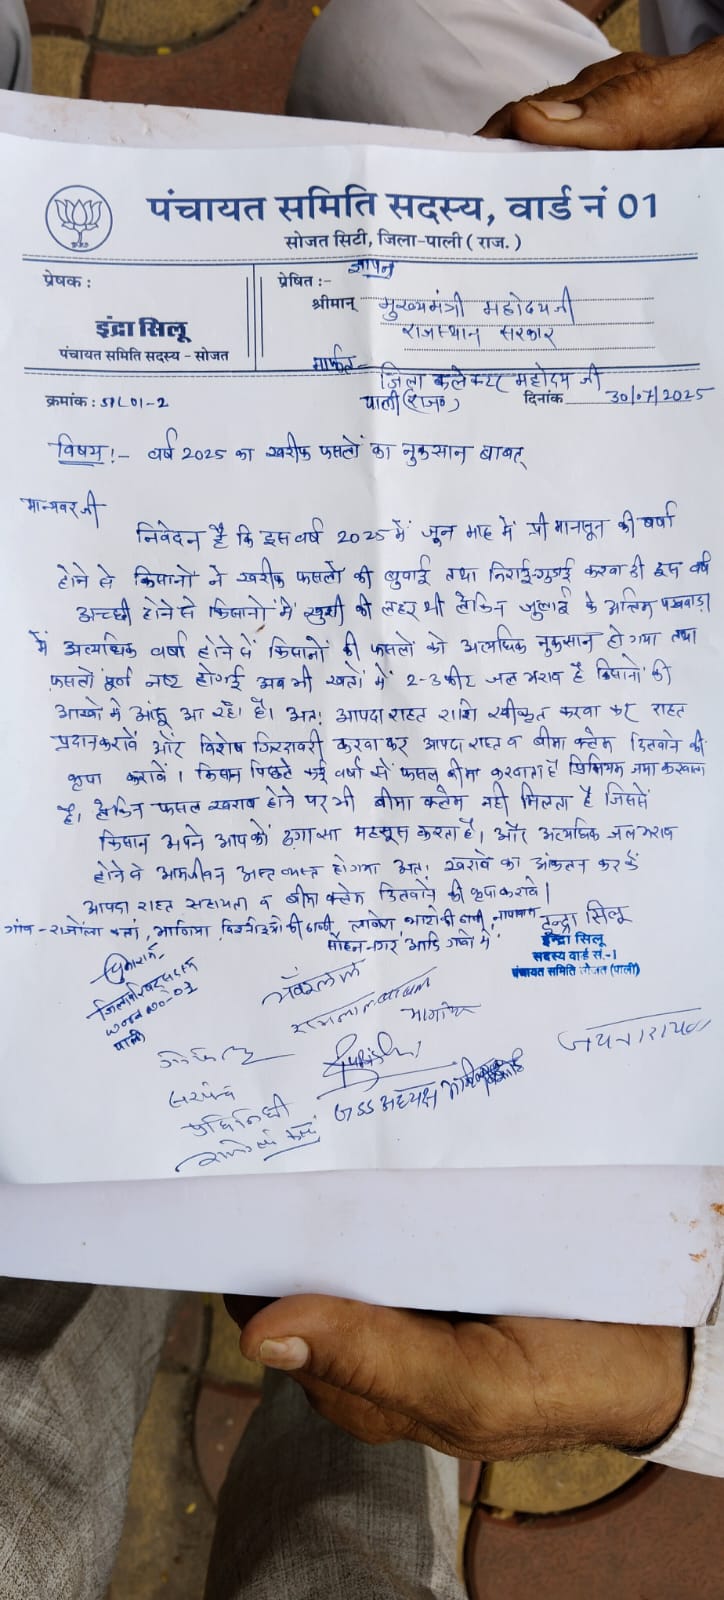 पंचायत समिति सदस्य, वार्ड नं 01
सोजत सिटी, जिला-पाली ( राज. )
प्रेषक :
इंद्रा सिलू
पंचायत समिति सदस्य - सोजत
ज्ञापन
प्रेषित :-
श्रीमान् मुख्यमंत्री महोदयजी
राजस्थान सरकार
मार्फत - जिला कलेक्टर महोदय जी
पाली (राज०)
क्रमांक : 01-2
दिनांक 30/07/2025
विषय :- वर्ष 2025 का खरीफ फसलों का नुकसान बाबत्
मान्यवर जी
निवेदन है कि इस वर्ष 2025 में जून माह में प्री मानसून की वर्षा
होने से किसानों ने खरीफ फसलों की बुवाई तथा निराई-गुड़ाई करवा दी इस वर्ष
अच्छी होने से किसानों में खुशी की लहर थी लेकिन जुलाई के अन्तिम पखवाड़ा
में अत्यधिक वर्षा होने से किसानों की फसलों को अत्यधिक नुकसान हो गया तथा
फसलों पूर्ण नष्ट होगई अब भी खेतों में 2-3 फीट जल भराव है किसानों की
आखों में आंसू आ रहे है। अतः आपदा राहत राशि स्वीकृत करवा कर राहत
प्रदान करावें और विशेष गिरदावरी करवा कर आपदा राहत व बीमा क्लेम दिलवाने की
कृपा करावें। किसान पिछले कई वर्षो से फसल बीमा करवाता है प्रिमियम जमा करवाता
है, लेकिन फसल खराब होने पर भी बीमा क्लेम नही मिलता है जिससे
किसान अपने आप को ठगा सा महसूस करता है। और अत्यधिक जल भराव
होने से आमजीवन अस्त व्यस्त होगया अतः खराबे का आंकलन कर के
आपदा राहत सहायता व बीमा क्लेम दिलवाने की कृपा करावे।
गांव - राजोला कलां, भाणिया,
मोहन नगर आदि गांवो में
इन्द्रा सिलू
इंद्रा सिलू
सदस्य वार्ड सं.-1
पंचायत समिति सोजत (पाली)
जिला परिषद सदस्य
वार्ड no-03
पाली
भंवरलाल
रामलाल
सरपंच
प्रतिनिधी
राजोला कलां
GSS अध्यक्ष
जयनारायण